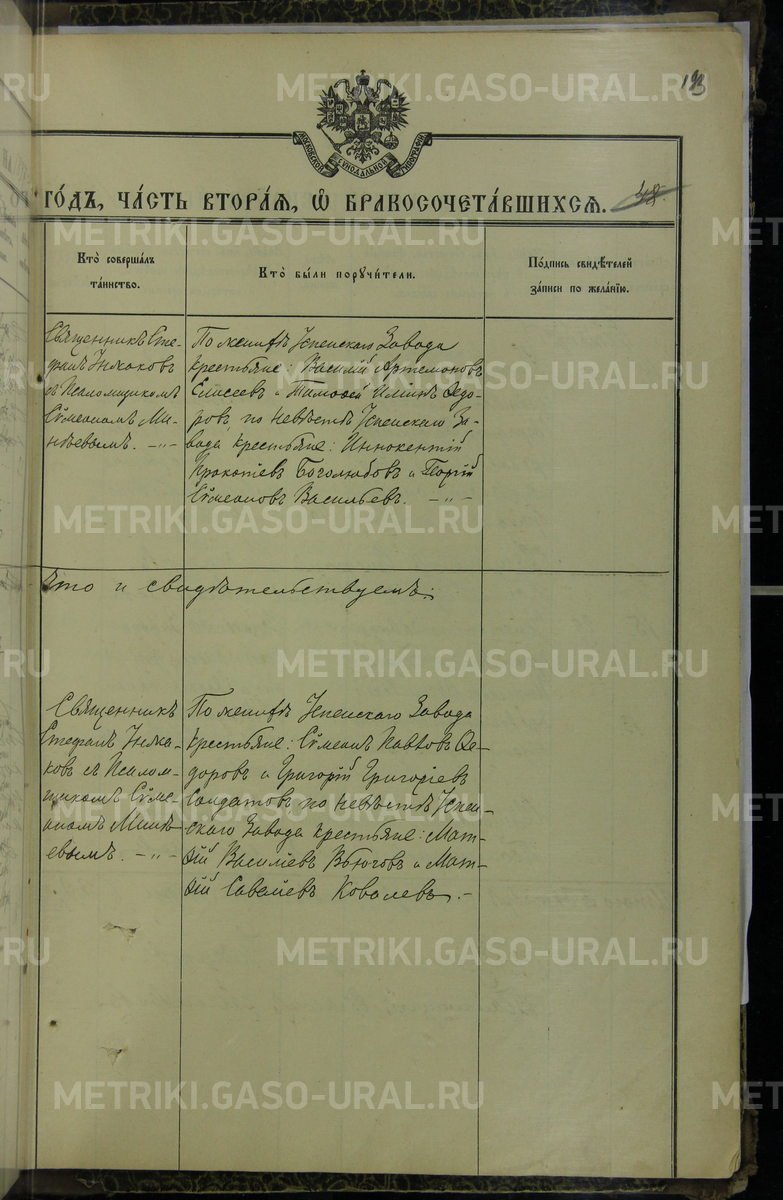 METRIKI.GASO-URAL.RU
193
МОСКОВСКОЙ СѴНОДАЛЬНОЙ ТИПОГРАФІИ
ГО́ДЪ, ЧА́СТЬ ВТОРА́Я, Ѡ҆ БРАКОСОЧЕТА́ВШИХСЯ. 48.
Кто̀ соверша́лъ
та́инство.
Кто̀ бы́ли поручи́тели.
По́дпись свидѣ́телей
за́писи по жела́нію.
Священникъ Сте-
фанъ
съ Псаломщикомъ
Сѵмеономъ Ми-
нѣевымъ. -„-
По женихѣ Успенскаго Завода
крестьяне: Василій Артемоновъ
Елисеевъ и Тимофей Ильинъ Ѳедо-
ровъ, по невѣстѣ Успенскаго За-
вода крестьяне: Иннокентій
Прокопіевъ Боголюбовъ и Георгій
Сѵмеоновъ Васильевъ. -„-
Что и свидѣтельствуемъ:
Священникъ
Стефанъ
съ Псалом-
щикомъ Сѵме-
ономъ Минѣ-
евымъ. -„-
По женихѣ Успенскаго Завода
крестьяне: Сѵмеонъ Павловъ Ѳе-
доровъ и Григорій Григоріевъ
Солдатовъ, по невѣстѣ Успен-
скаго Завода крестьяне: Мат-
ѳій Василіевъ Вьюговъ и Мат-
ѳій Ковалевъ.-